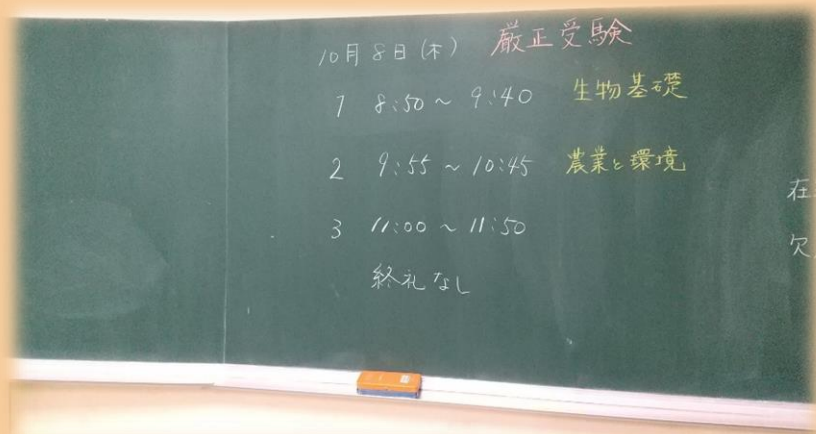 10月8日(木) 厳正受験
1 8:50～9:40 生物基礎
2 9:55～10:45 農業と環境
3 11:00～11:50
終礼なし
在
欠